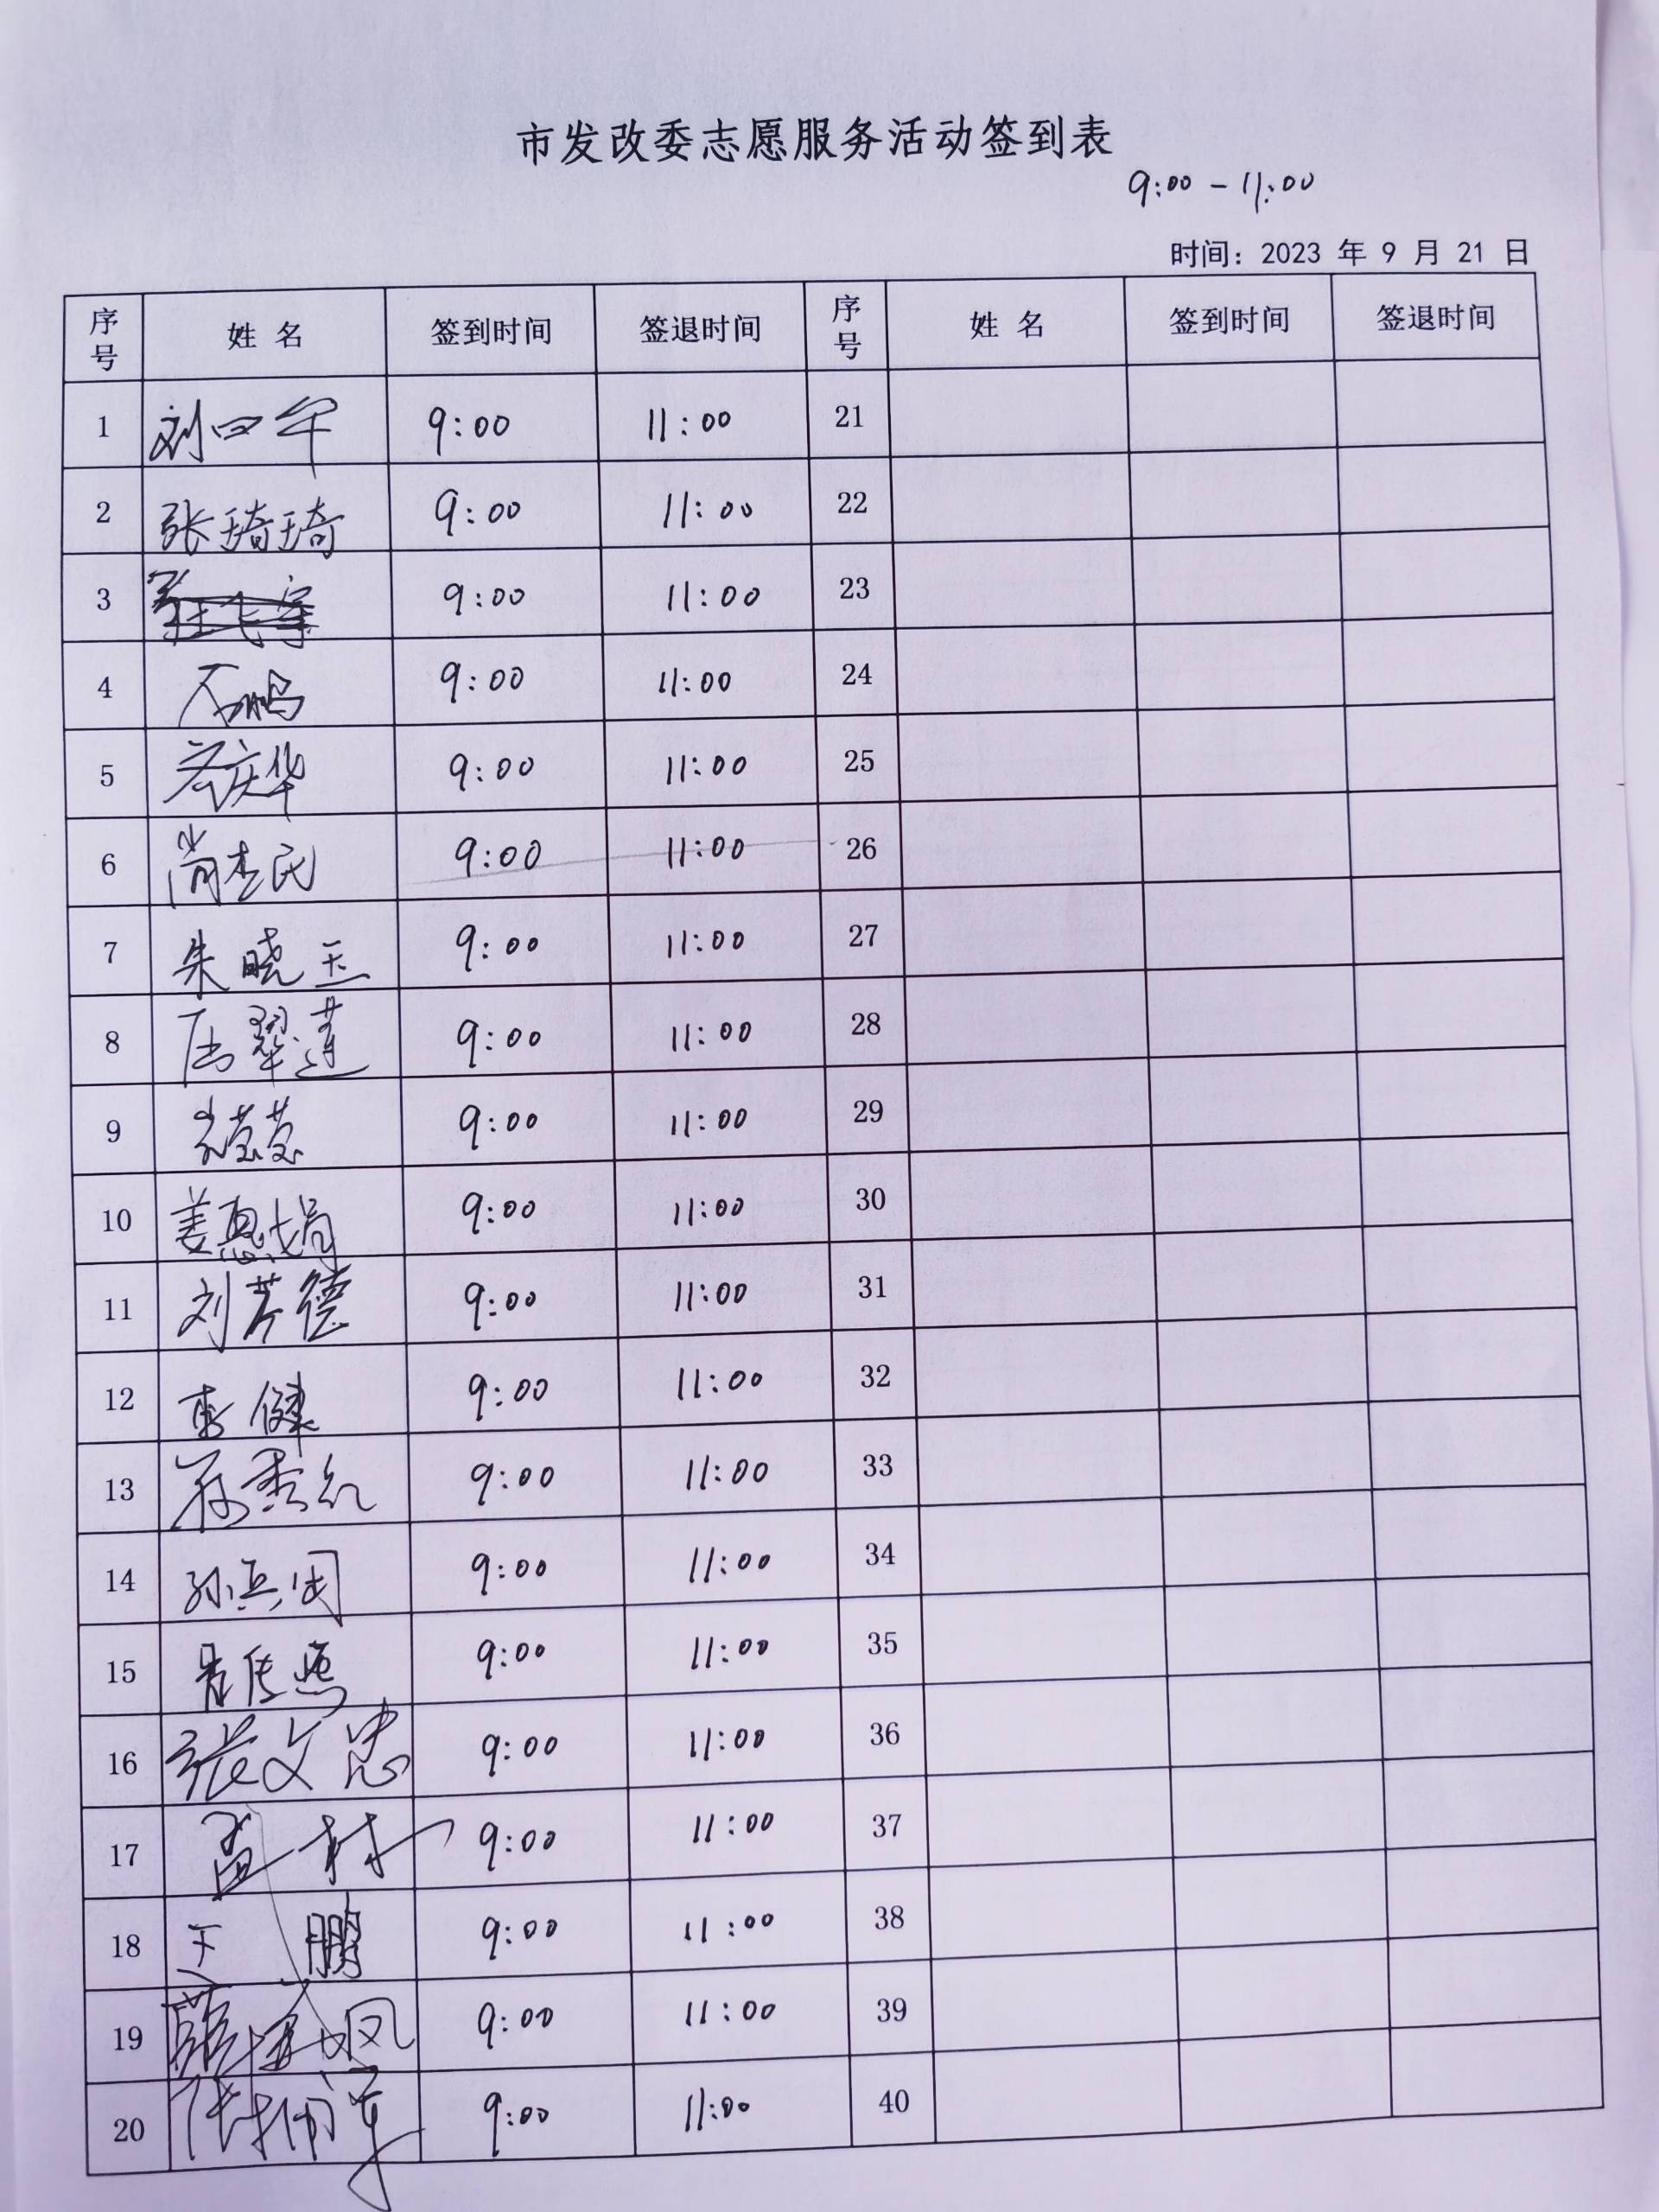 市发改委志愿服务活动签到表
9:00 - 11:00
时间：2023 年 9 月 21 日
序号 姓 名 签到时间 签退时间 序号 姓 名 签到时间 签退时间
1 刘四午 9:00 11:00 21
2 张琦琦 9:00 11:00 22
3 9:00 11:00 23
4 9:00 11:00 24
5 9:00 11:00 25
6 尚杰民 9:00 11:00 26
7 朱晓玉 9:00 11:00 27
8 9:00 11:00 28
9 9:00 11:00 29
10 姜惠娟 9:00 11:00 30
11 刘芹德 9:00 11:00 31
12 李健 9:00 11:00 32
13 9:00 11:00 33
14 9:00 11:00 34
15 9:00 11:00 35
16 张文忠 9:00 11:00 36
17 孟村 9:00 11:00 37
18 王鹏 9:00 11:00 38
19 9:00 11:00 39
20 9:00 11:00 40